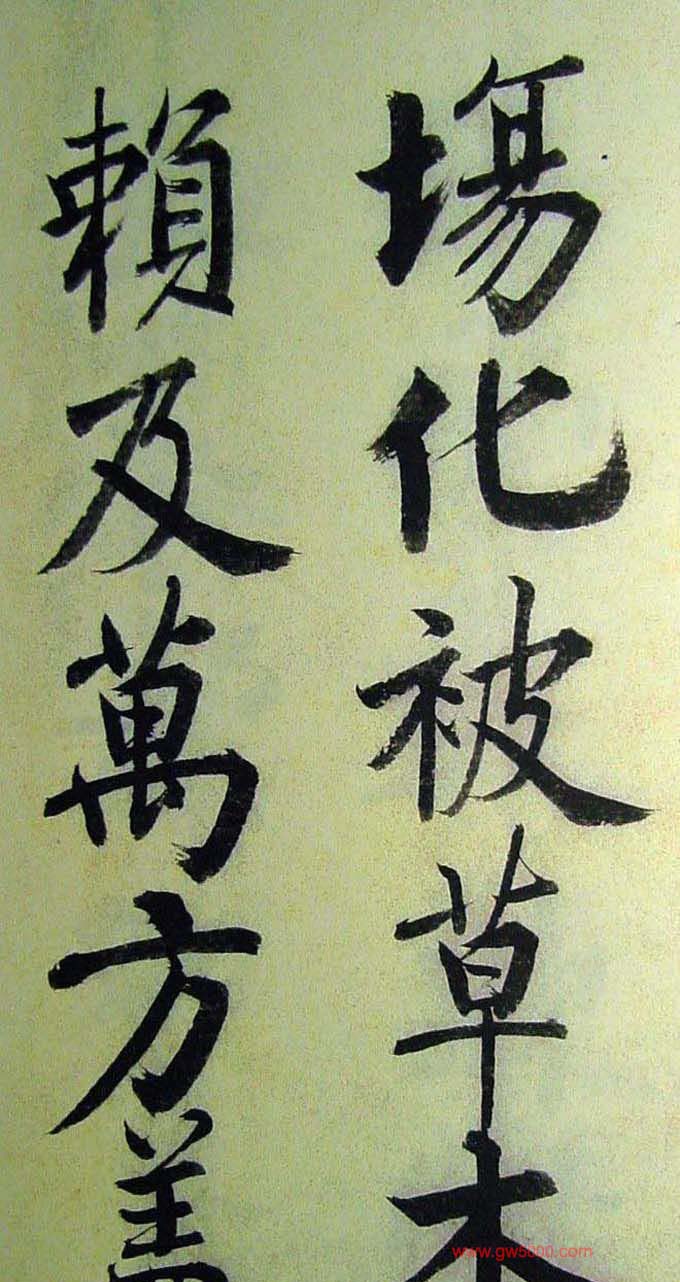 塲化被草木
賴及萬方蓋
www.gw5000.com